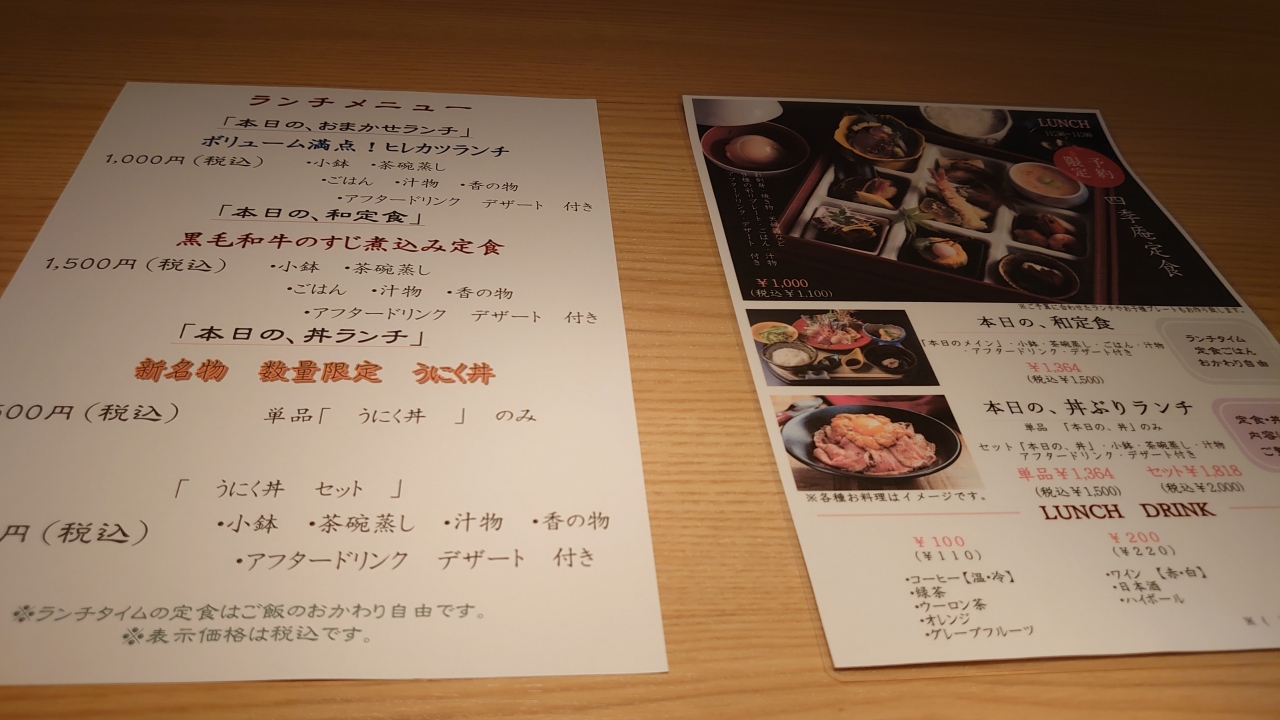 ランチメニュー
「本日の、おまかせランチ」
ボリューム満点！ヒレカツランチ
1,000円（税込） ・小鉢 ・茶碗蒸し
・ごはん ・汁物 ・香の物
・アフタードリンク デザート 付き
「本日の、和定食」
黒毛和牛のすじ煮込み定食
1,500円（税込） ・小鉢 ・茶碗蒸し
・ごはん ・汁物 ・香の物
・アフタードリンク デザート 付き
「本日の、丼ランチ」
新名物 数量限定 うにく丼
500円（税込） 単品「 うにく丼 」 のみ
「 うにく丼 セット 」
円（税込） ・小鉢 ・茶碗蒸し ・汁物 ・香の物
・アフタードリンク デザート 付き
※ランチタイムの定食はご飯のおかわり自由です。
※表示価格は税込です。
LUNCH
予約
限定
四季庵定食
アフタードリンク デザート 付き
¥1,000
(税込¥1,100)
本日の、和定食
「本日のメイン」・小鉢・茶碗蒸し・ごはん・汁物
・アフタードリンク・デザート付き
¥1,364
(税込¥1,500)
ランチタイム
定食ごはん
おかわり自由
本日の、丼ぶりランチ
単品 「本日の、丼」のみ
セット「本日の、丼」・小鉢・茶碗蒸し・汁物
アフタードリンク・デザート付き
単品¥1,364 セット¥1,818
(税込¥1,500) (税込¥2,000)
定食・
内容
ご
※各種お料理はイメージです。
LUNCH DRINK
¥100
(¥110)
・コーヒー【温・冷】
・緑茶
・ウーロン茶
・オレンジ
・グレープフルーツ
¥200
(¥220)
・ワイン 【赤・白】
・日本酒
・ハイボール